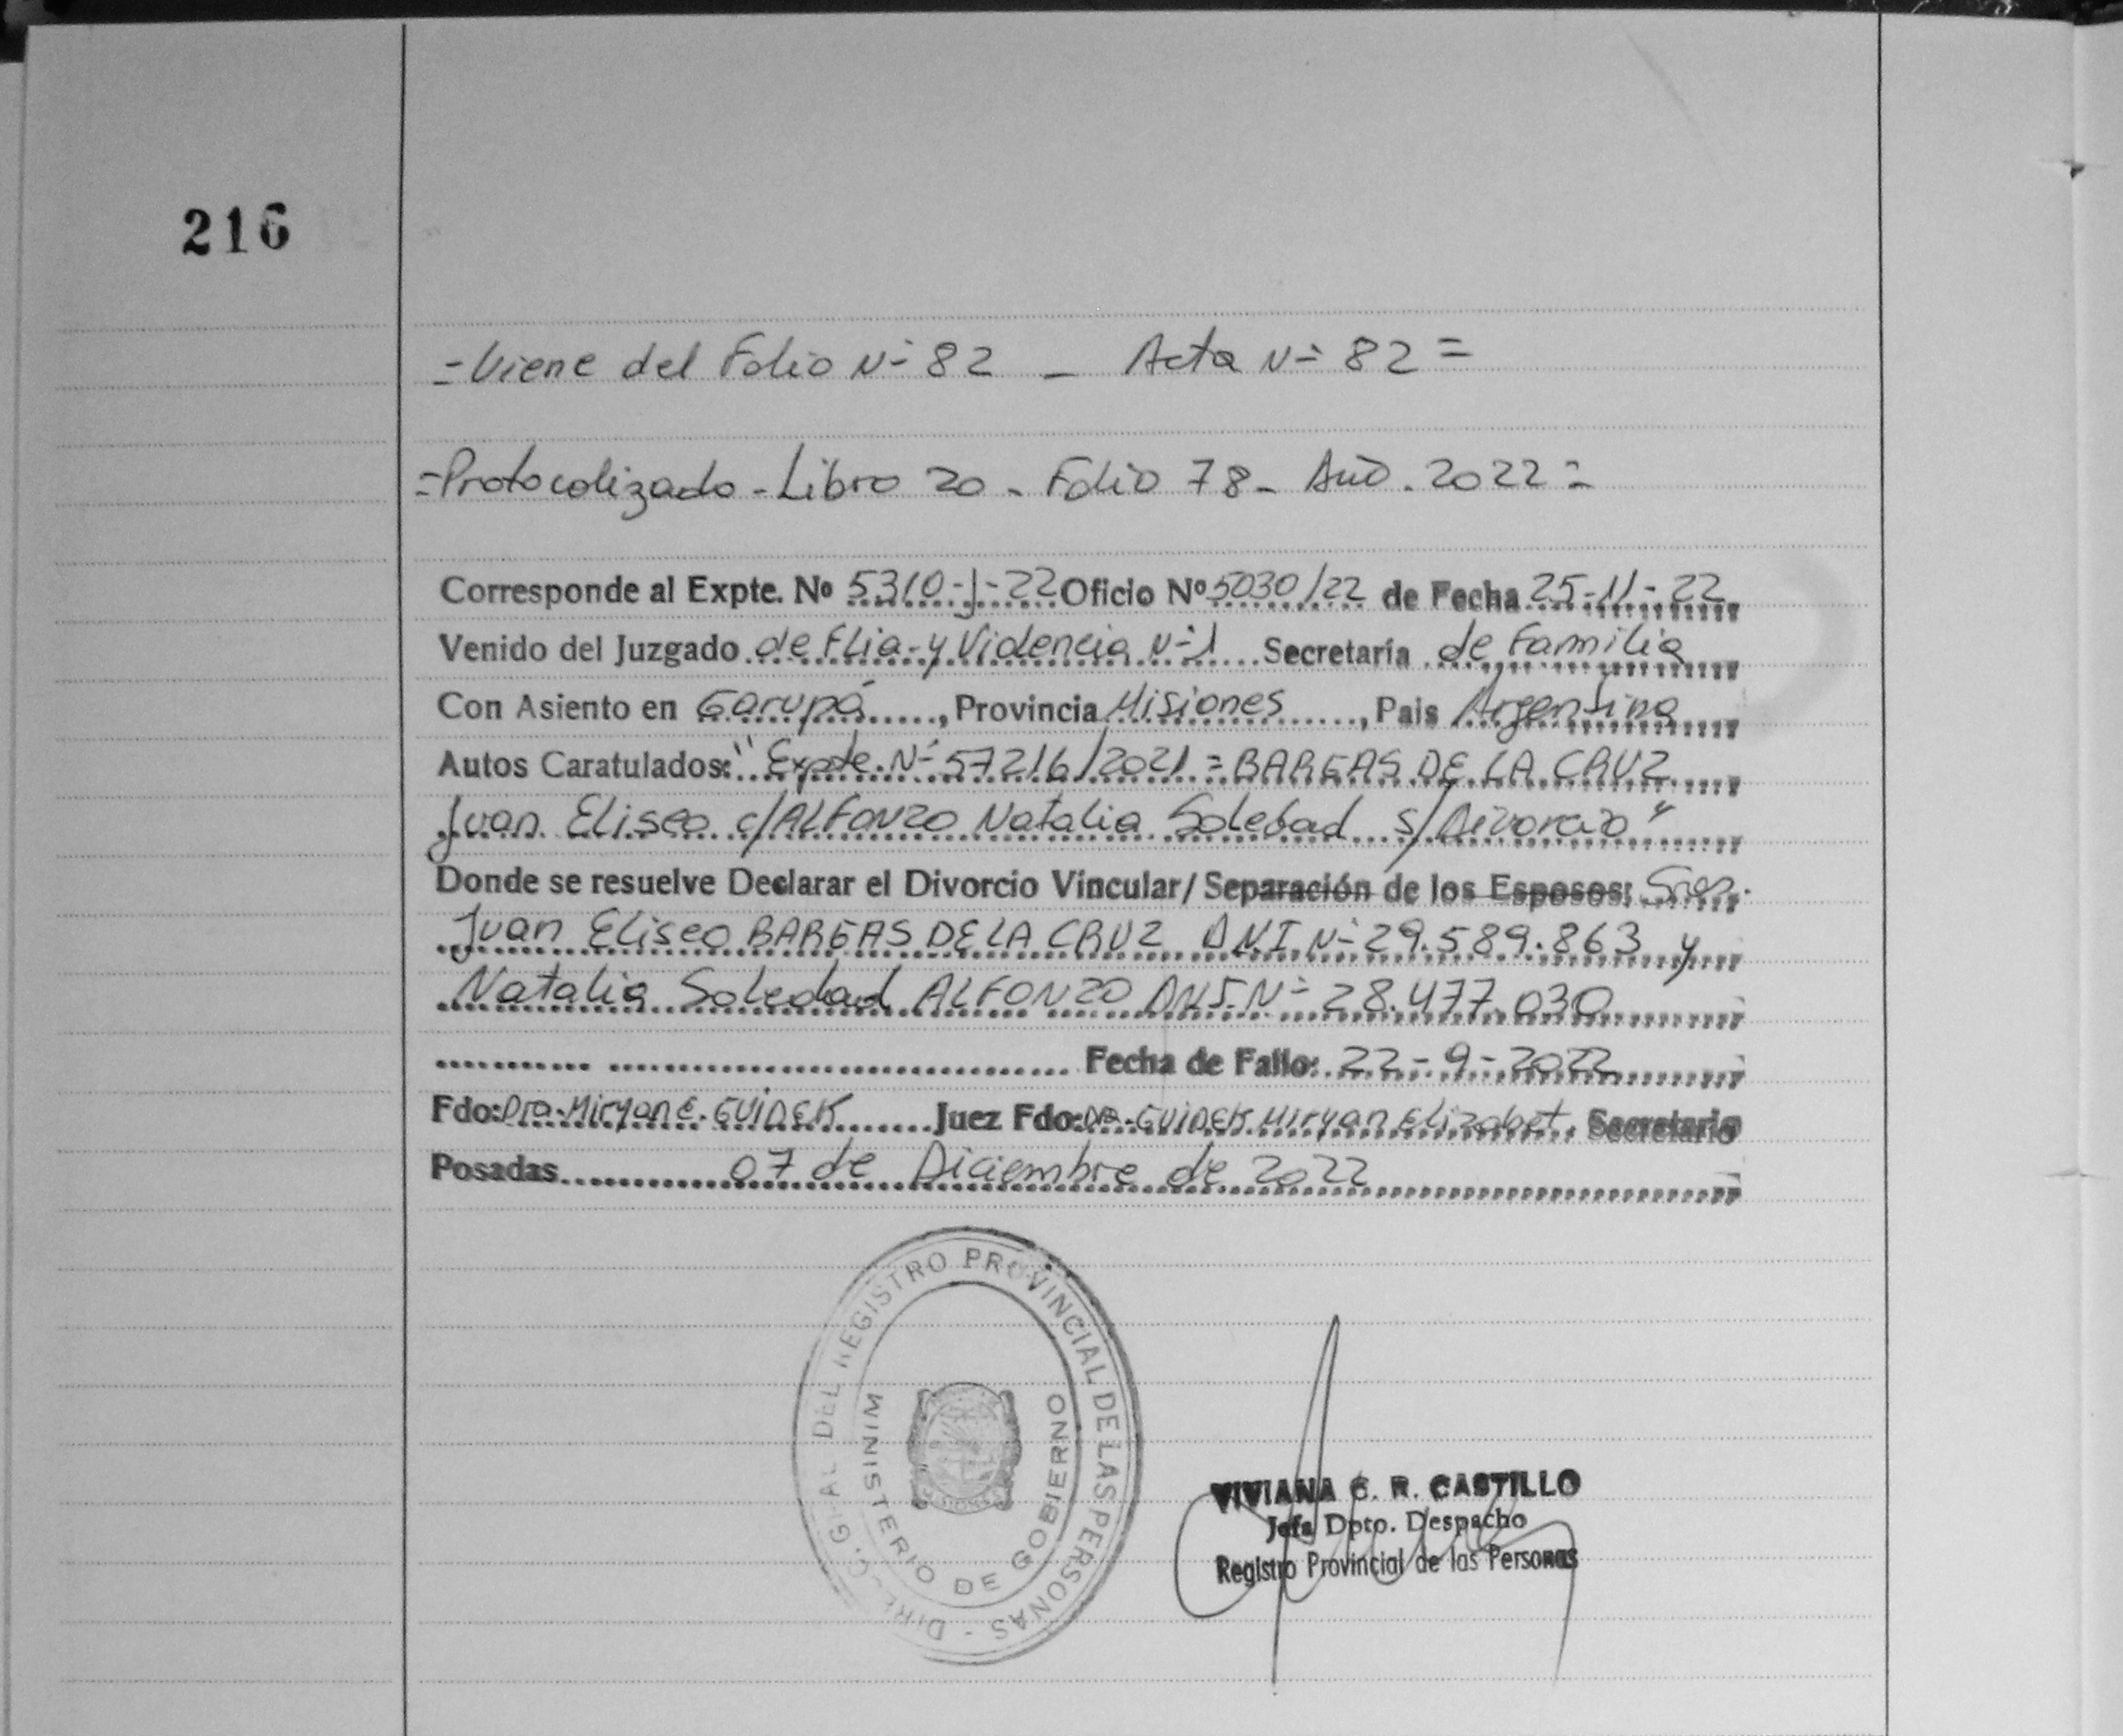 216
=Viene del Folio Nº 82 - Acta Nº 82=
=Protocolizado - Libro 20 - Folio 78 - Año. 2022=
Corresponde al Expte. Nº 5310-J-22 Oficio Nº 5030/22 de Fecha 25-11-22
Venido del Juzgado de Flia. y Violencia Nº1 Secretaría de Familia
Con Asiento en Garupá, Provincia Misiones, Pais Argentina
Autos Caratulados: "Expte. Nº 57216/2021 = BARGAS DE LA CRUZ
Juan Eliseo c/ALFONZO Natalia Soledad s/Divorcio"
Donde se resuelve Declarar el Divorcio Vincular/ Separación de los Esposos: Sres.
Juan Eliseo BARGAS DE LA CRUZ DNI Nº 29.589.863 y
Natalia Soledad ALFONZO DNI. Nº 28.477.030
Fecha de Fallo: 22-9-2022
Fdo: Dra. Miryan E. GUIDEK Juez Fdo: Dra. GUIDEK Miryan Elizabet. Secretario
Posadas 07 de Diciembre de 2022
DEL REGISTRO PROVINCIAL DE LAS PERSONAS -
MINISTERIO DE GOBIERNO
VIVIANA C. R. CASTILLO
Jefa Dpto. Despacho
Registro Provincial de las Personas